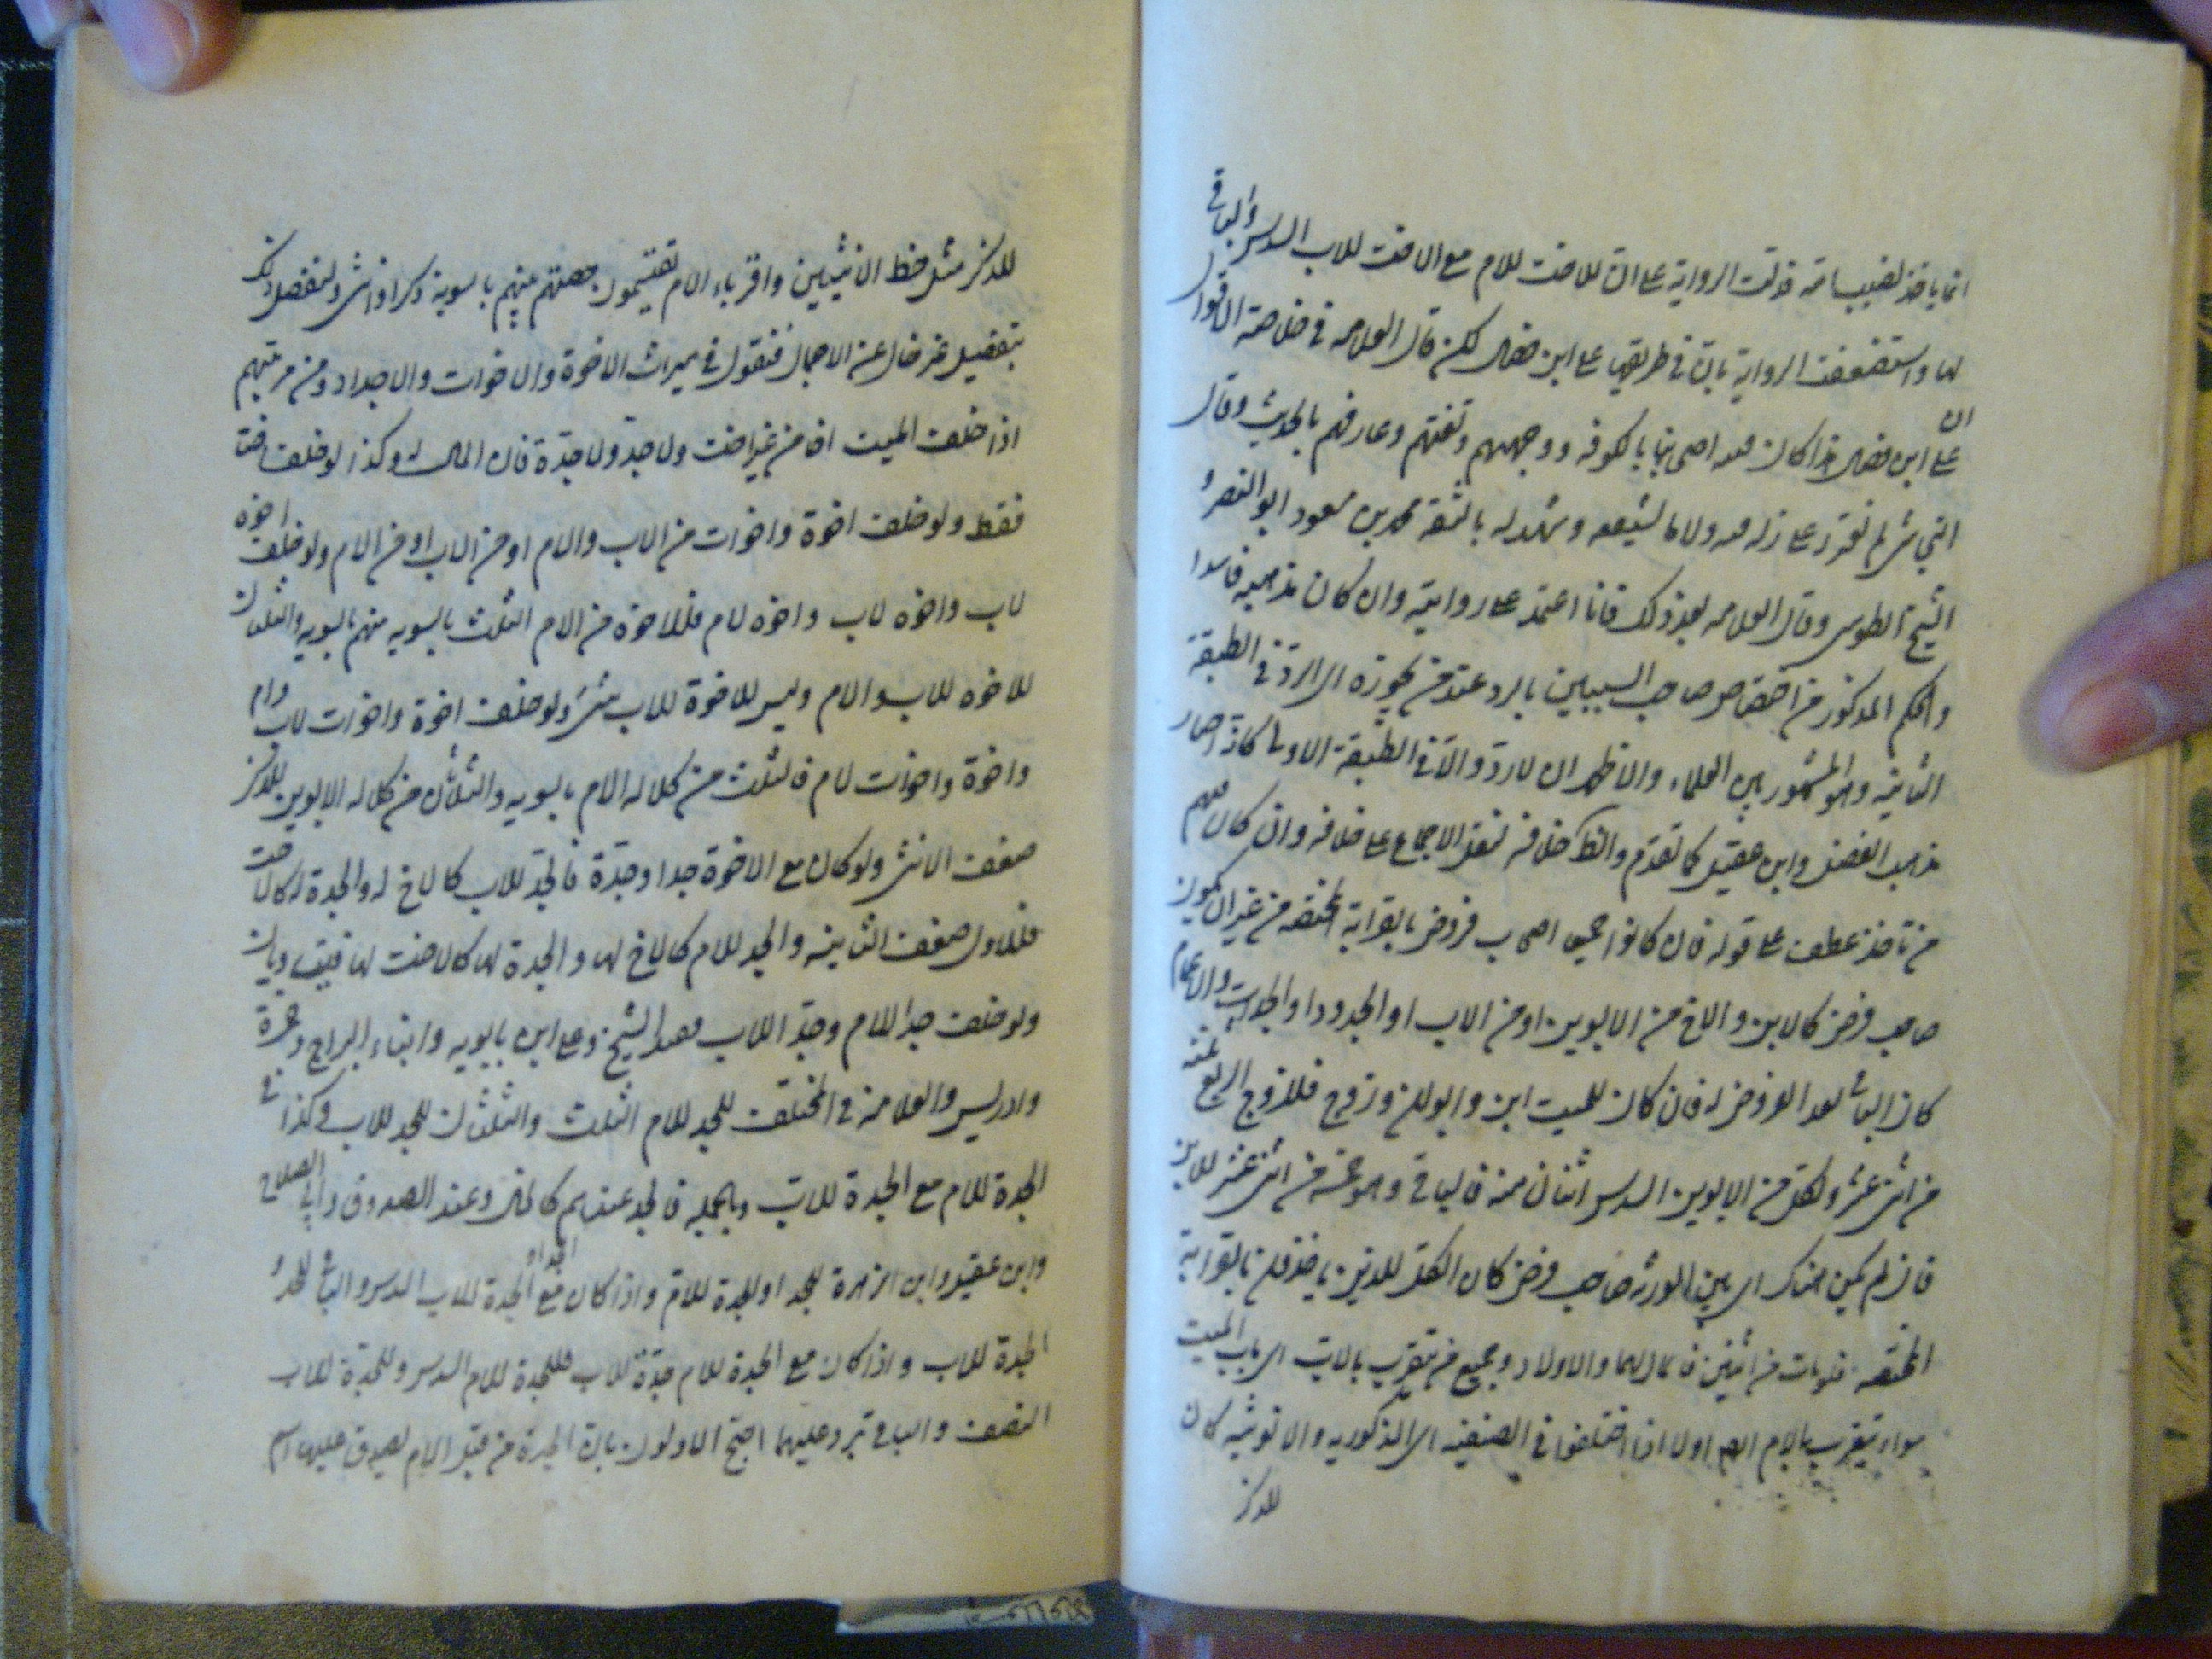 انما یاخذ نصیب امه فدلت الروایة علی ان للاخت للام مع الاخت للاب السدس والباقی
لها واستضعفت الروایة بان فی طریقها علی ابن فضال لکن قال العلامه فی خلاصة الاقوال
ان علی ابن فضال هذا کان فقیه اصحابنا بالکوفه ووجههم وثقتهم وعارفهم بالحدیث وقال
النجاشی لم نعثر علی زلة فیه ولا ما یشینه وشهد له بالثقة محمد بن مسعود ابو النصر و
الشیخ الطوسی وقال العلامه بعد ذلک فانا اعتمد علی روایته وان کان مذهبه فاسدا
والحکم المذکور من اختصاص صاحب السببین بالرد عند من یجوزه ای الرد فی الطبقة
الثانیه وهو المشهور بین العلماء والاظهر ان لا رد والا فی الطبقة الاولی کما اختار
مذهب الفضل وابن عقیل کما تقدم والظ خلافه لنقل الاجماع علی خلافه وان کان منهم
من تاخذ عطف علی قوله فان کانوا جمیعا اصحاب فروض بالقرابة المحضه من غیر ان یکون
صاحب فرض کالابن والاخ من الابوین او من الاب او الجدودا والجدات والاعمام
کان الباقی بعد الفروض له فان کان للمیت ابن وابوان وزوج فللزوج الربع ثلثة
من اثنی عشر ولکل من الابوین السدس اثنان منه فالباقی وهو خمسة من اثنی عشر للابن
فان لم یکن هناک ای بین الورثه صاحب فرض کان الکل للذین یاخذون بالقرابة
المحضه فلو مات من اثنین فالمال لهما والاولاد وجمیع من یتقرب بالاب ای باب المیت
سواء یتقرب بالام ایضا اولا اذا اختلفوا فی الصنفیه ای الذکوریه والانوثیه کان
للذکر
للذکر مثل حظ الانثیین واقرباء الام یقتسمون حصتهم منهم بالسویة ذکرا وانثی ولنفصل ذلک
بتفصیل غیر خال عن الاجمال فنقول فی میراث الاخوة والاخوات والاجداد ومن مرتبتهم
اذا خلف المیت اخا من غیر اخت ولا جد ولا جدة فان المال له وکذا لو خلف اختا
فقط ولو خلف اخوة واخوات من الاب والام او من الاب او من الام ولو خلف اخوة
لاب واخوه لاب واخوه لام فللاخوة من الام الثلث بالسویه منهم بالسویه والثلثان
للاخوه للاب والام ولیس للاخوة للاب شیء ولو خلف اخوة واخوات لاب وام
واخوة واخوات لام فالثلث من کلاله الام بالسویه والثلثان من کلاله الابوین للذکر
ضعف الانثی ولو کان مع الاخوة جدا وجدة فالجد للاب کالاخ له والجدة له کالاخت
فللاول ضعف الثانیه والجد للام کالاخ لها والجدة لها کالاخت لها فیتساویان
ولو خلف جدا للام وجدا للاب فعند الشیخ وعلی ابن بابویه وابناء البراج وحمزة
وادریس والعلامة فی المختلف للجد للام الثلث والثلثان للجد للاب وکذا فی
الجدة للام مع الجدة للاب وبالجملة فالجد عندهم کالخال وعند الصدوق وابی الصلاح
وابن عقیل وابن الزهرة للجد او للجدة للام واذا کان مع الجد او الجدة للاب السدس والباقی للجد و
الجدة للاب واذا کان مع الجدة للام جدة للاب فللجدة للام السدس وللجدة للاب
النصف والباقی یرد علیهما احتج الاولون بان الجدة من قبل الام یصدق علیها اسم